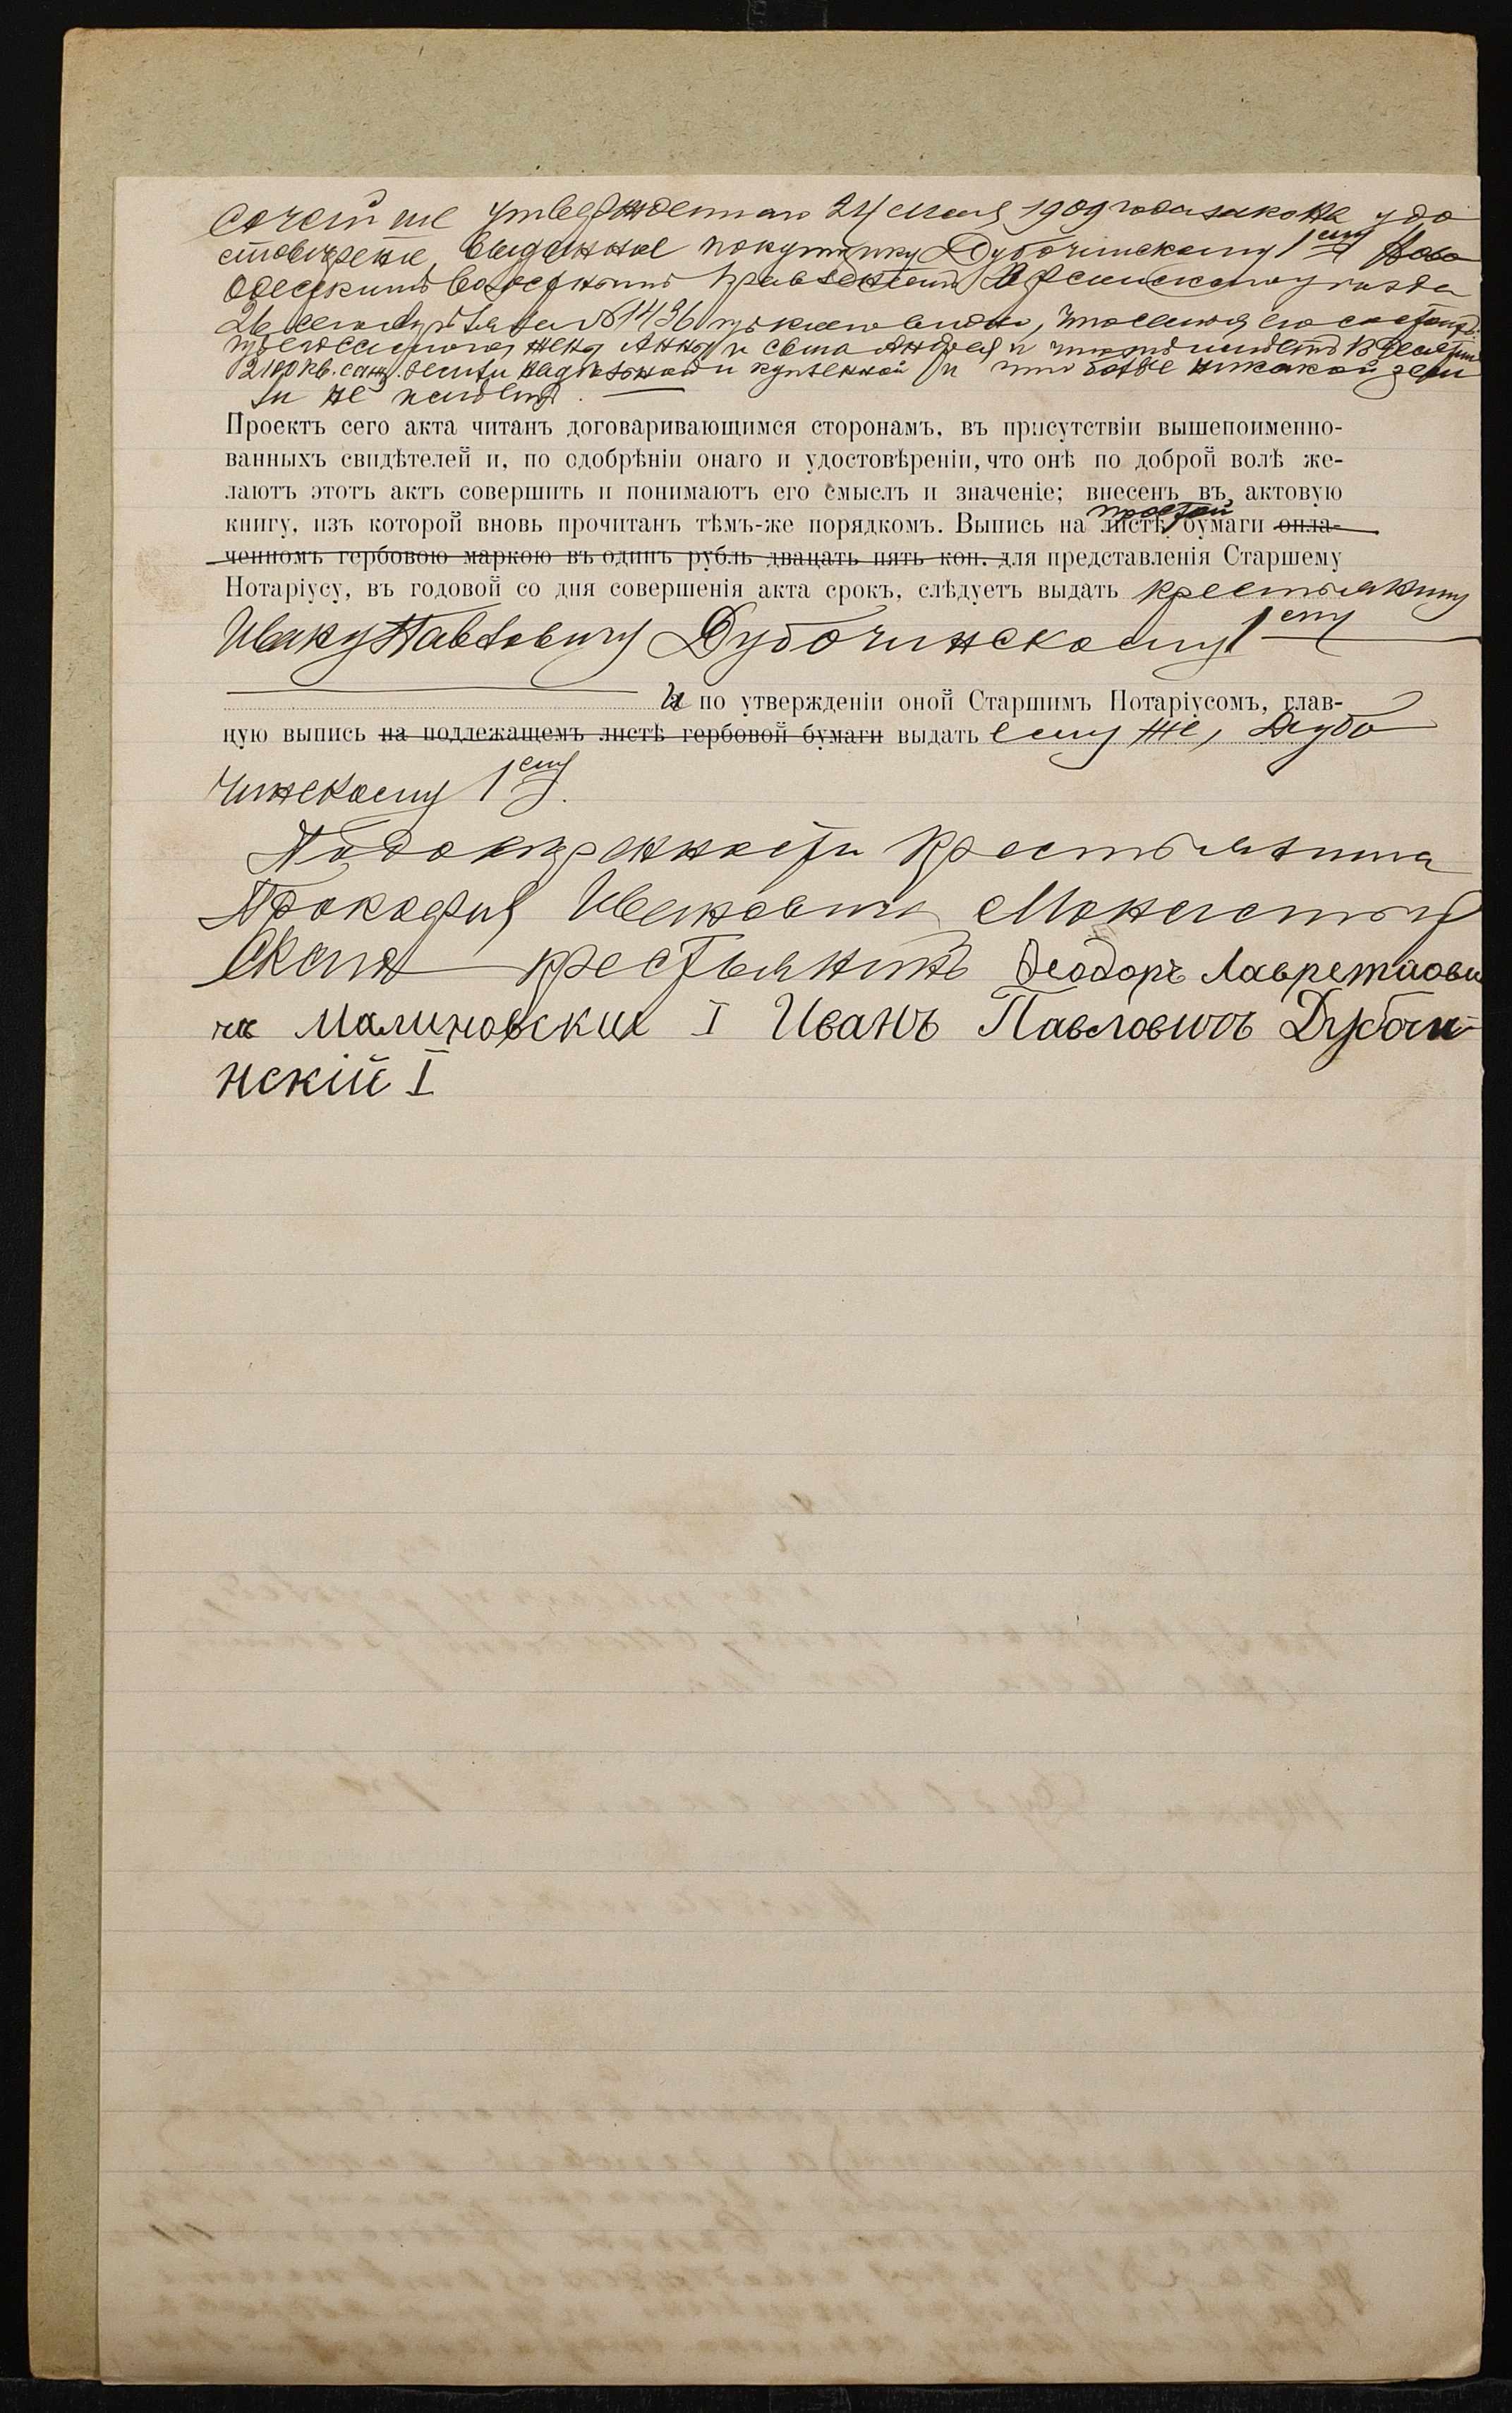 Высочайше утвержденнаго 24 мая 1909 года закона удо
стовѣреніе, выданное покупщику Дубочинскому 1ему Ново
Одесскимъ Волостнымъ Правленіемъ Херсонскаго уѣзда
26 сего Августа за № 1436 изъ коего видно, что семья его состоитъ
изъ него самого, жены Анны и сына Андрея и что онъ имѣетъ 13 десятинъ
2100 кв. саж. земли надѣльной и купленной и что болѣе никакой зем
ли не имѣетъ.
Проектъ сего акта читанъ договаривающимся сторонамъ, въ присутствіи вышепоимено-
ванныхъ свидѣтелей и, по одобрѣніи онаго и удостовѣреніи, что онѣ по доброй волѣ же-
лаютъ этотъ актъ совершить и понимаютъ его смыслъ и значеніе; внесенъ въ актовую
простой
книгу, изъ которой вновь прочитанъ тѣмъ-же порядкомъ. Выпись на листѣ бумаги опла-
ченномъ гербовою маркою въ одинъ рубль двацать пять коп. для представленія Старшему
Нотаріусу, въ годовой со дня совершенія акта срокъ, слѣдуетъ выдать крестьянину
Ивану Павловичу Дубочинскому 1ему
и по утвержденіи оной Старшимъ Нотаріусомъ, глав-
ную выпись на подлежащемъ листѣ гербовой бумаги выдать ему же, Дубо
чинскому 1ему.
По довѣренности крестьянина
Прокофія Ивановича Монастыр
скаго крестьянинъ Ѳеодоръ Лаврентіови
чъ Малиновский I Иванъ Павловичъ Дубочи-
нскій I